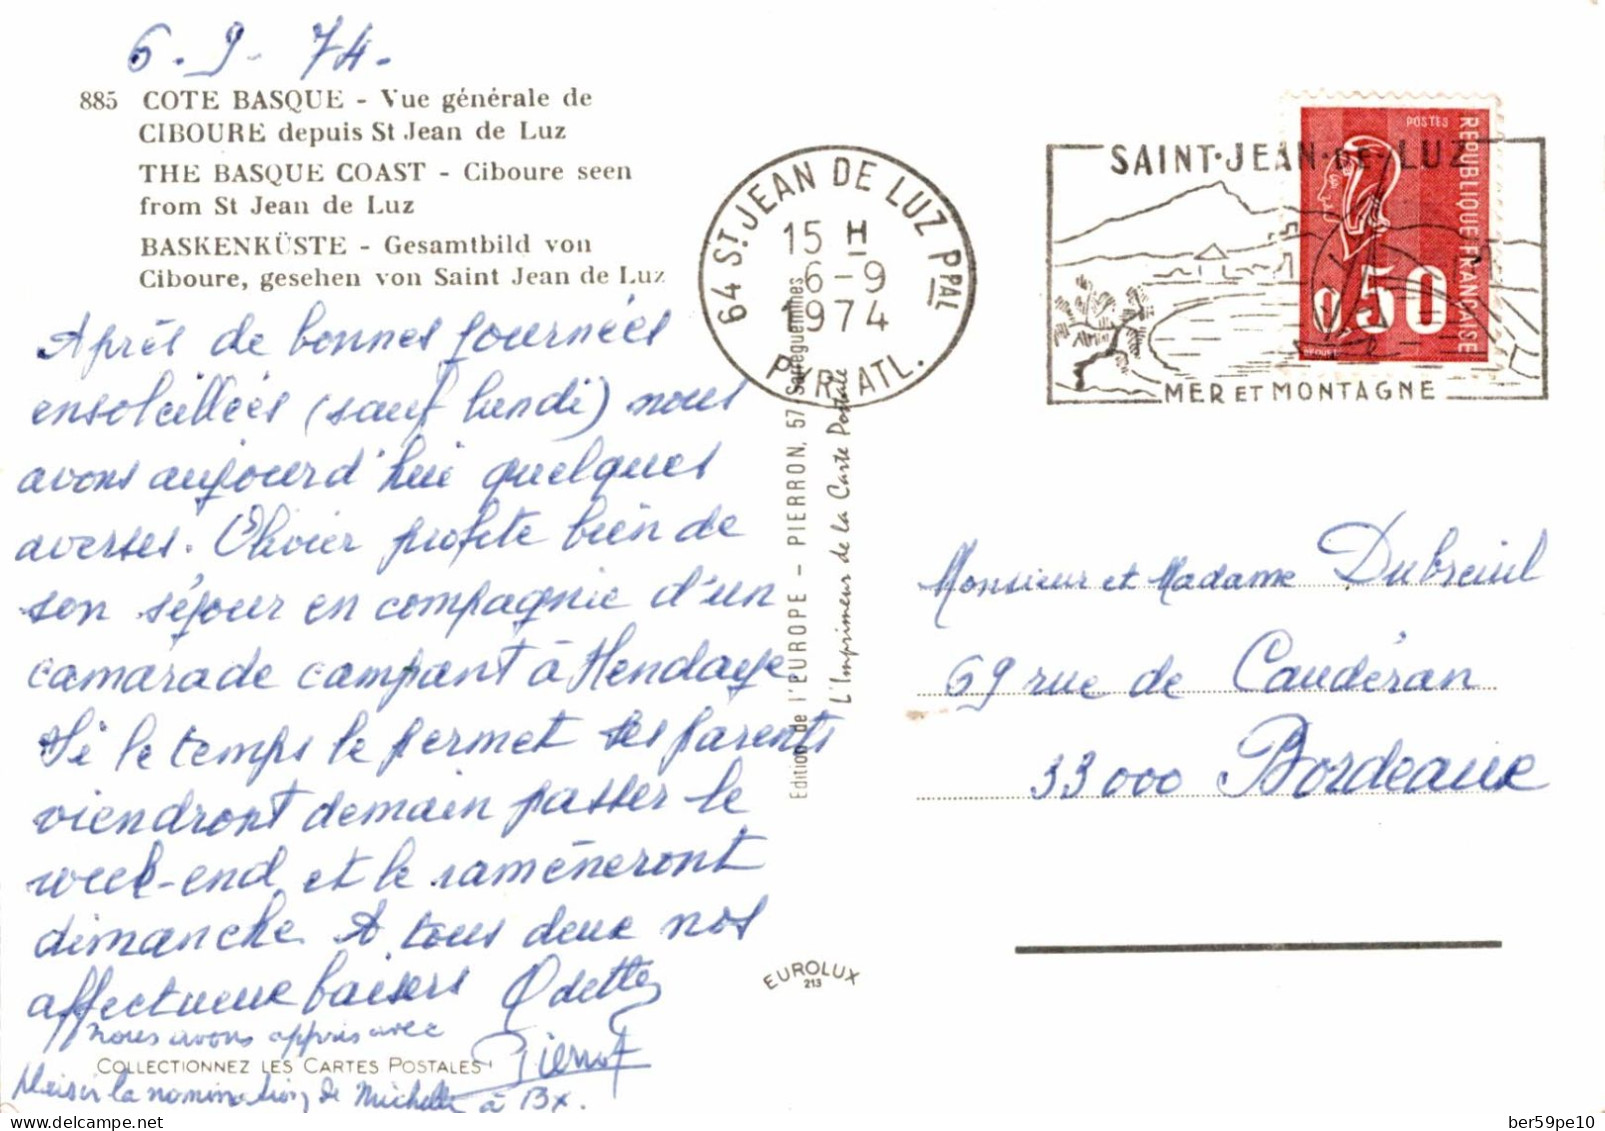 6.9.74.
885 COTE BASQUE - Vue générale de
CIBOURE depuis St Jean de Luz
THE BASQUE COAST - Ciboure seen
from St Jean de Luz
BASKENKÜSTE - Gesamtbild von
Ciboure, gesehen von Saint Jean de Luz
Après de bonnes journées
ensoleillées (sauf lundi) nous
avons aujourd'hui quelques
averses. Olivier profite bien de
son séjour en compagnie d'un
camarade campant à Hendaye
Si le temps le permet ses parents
viendront demain passer le
week-end et le ramèneront
dimanche. A tous deux nos
affectueux baisers Odette
Pierrot
nous avons appris avec
plaisir la nomination de Michelle à Bx.
COLLECTIONNEZ LES CARTES POSTALES!
Edition de l'EUROPE - PIERRON, 57 Sarreguemines
L'Imprimeur de la Carte Postale
EUROLUX
213
64 ST JEAN DE LUZ PPAL
15 H
6-9
1974
PYR. ATL.
SAINT-JEAN-DE-LUZ
MER ET MONTAGNE
POSTES
REPUBLIQUE FRANÇAISE
0,50
BEQUET
Monsieur et Madame Dubreuil
69 rue de Caudéran
33000 Bordeaux
ber59pe10